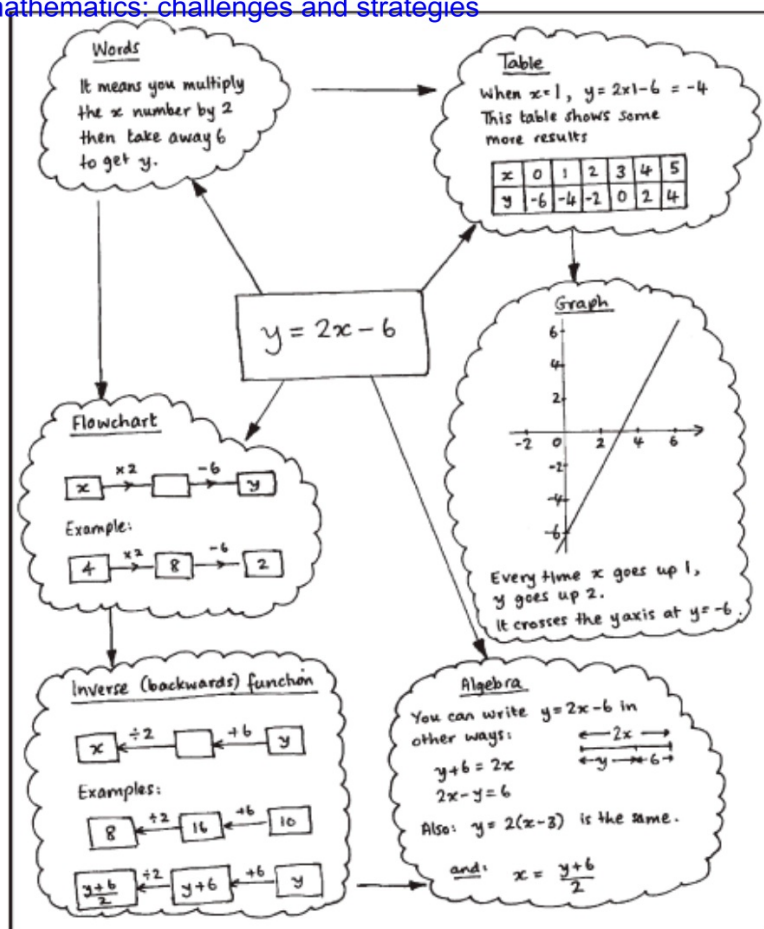 mathematics: challenges and strategies
Words
It means you multiply
the x number by 2
then take away 6
to get y.
Table
When x=1, y= 2x1-6 = -4
This table shows some
more results
x 0 1 2 3 4 5
y -6 -4 -2 0 2 4
y = 2x - 6
Graph
6
4
2
-2 0 2 4 6
-2
-4
-6
Every time x goes up 1,
y goes up 2.
It crosses the y axis at y=-6.
Flowchart
×2 -6
x y
Example:
×2 -6
4 8 2
Inverse (backwards) function
÷2 +6
x y
Examples:
÷2 +6
8 16 10
÷2 +6
y+6/2 y+6 y
Algebra
You can write y=2x-6 in
other ways:
2x
y 6
y+6 = 2x
2x-y=6
Also: y= 2(x-3) is the same.
and: x = y+6/2